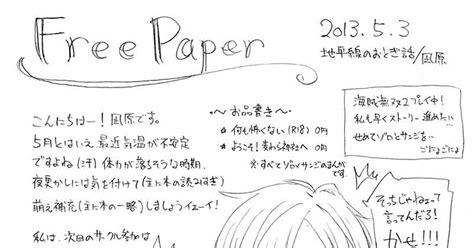 Free Paper
2013.5.3
地平線のおとぎ話/凪原
こんにちはー！凪原です。
5月とはいえ、最近気温が不安定
ですよね(汗) 体力が落ちそうな時期、
夜更かしには気を付けて(主に本の読みすぎ)
萌え補充(主に本の一略)しましょうイェーイ!
私は、次回のサークル参加は
〜お品書き〜
☆ 何も怖くない(R18) 0円
☆ おこそ! 変わる神社へ 0円
※すべてゾロ×サンジのまんが
です。
海賊無双2プレイ中!
私も早くストーリー進めたい…
せめてゾロとサンジを…
ごにょごにょ
そっちじゃねェって
言ってんだろ!
かせ!!!